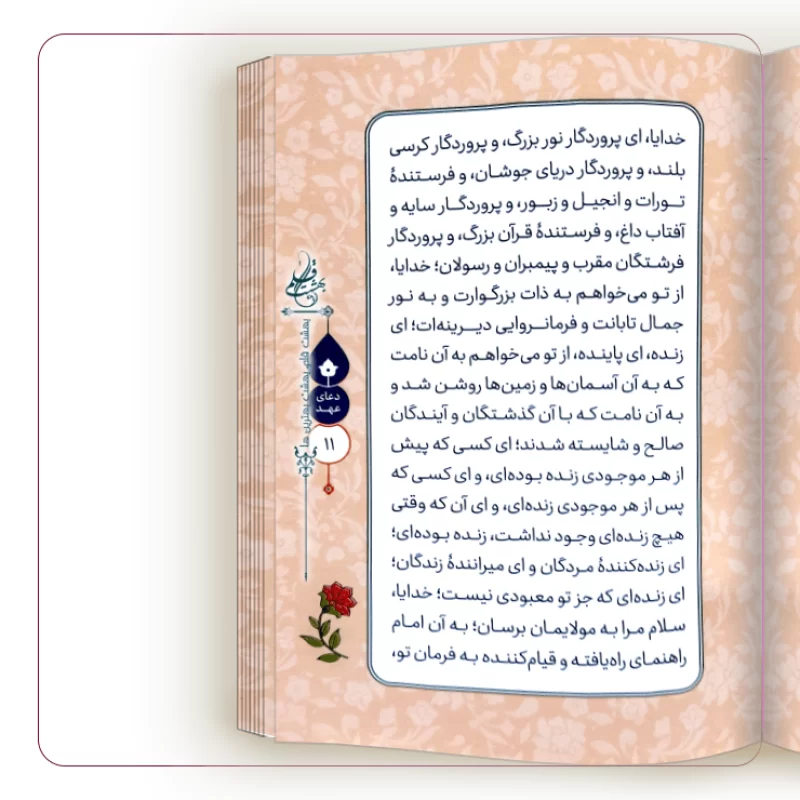 خدایا، ای پروردگار نور بزرگ، و پروردگار کرسی
بلند، و پروردگار دریای جوشان، و فرستندهٔ
تورات و انجیل و زبور، و پروردگار سایه و
آفتاب داغ، و فرستندهٔ قرآن بزرگ، و پروردگار
فرشتگان مقرب و پیمبران و رسولان؛ خدایا،
از تو می‌خواهم به ذات بزرگوارت و به نور
جمال تابانت و فرمانروایی دیرینه‌ات؛ ای
زنده، ای پاینده، از تو می‌خواهم به آن نامت
که به آن آسمان‌ها و زمین‌ها روشن شد و
به آن نامت که با آن گذشتگان و آیندگان
صالح و شایسته شدند؛ ای کسی که پیش
از هر موجودی زنده بوده‌ای، و ای کسی که
پس از هر موجودی زنده‌ای، و ای آن که وقتی
هیچ زنده‌ای وجود نداشت، زنده بوده‌ای؛
ای زنده‌کنندهٔ مردگان و ای میرانندهٔ زندگان؛
ای زنده‌ای که جز تو معبودی نیست؛ خدایا،
سلام مرا به مولایمان برسان؛ به آن امام
راهنمای راه‌یافته و قیام‌کننده به فرمان تو،
بهشت قلم
بهشت قلم، بهشت بهترین ها
دعای
عهد
۱۱